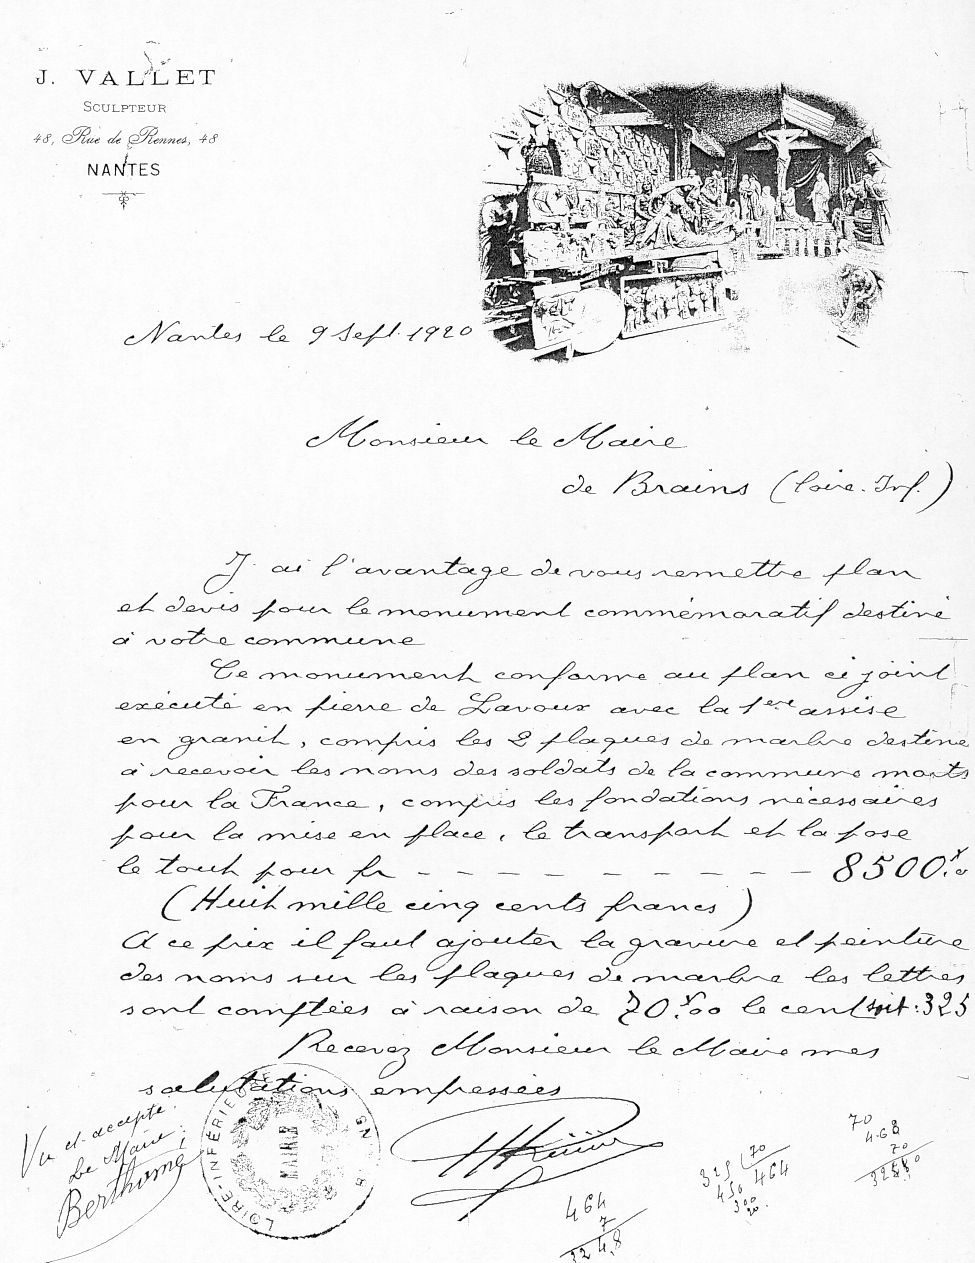 J. VALLET
SCULPTEUR
48, Rue de Rennes, 48
NANTES
Nantes le 9 Sept. 1920
Monsieur le Maire
de Brains (Loire. Inf.)
J'ai l'avantage de vous remettre plan
et devis pour le monument commémoratif destiné
à votre commune
Ce monument conforme au plan ci joint
exécuté en pierre de Lavoux avec la 1ere assise
en granit, compris les 2 plaques de marbre destiné
à recevoir les noms des soldats de la commune morts
pour la France, compris les fondations nécessaires
pour la mise en place, le transport et la pose
le tout pour fr _ _ _ _ _ _ _ _ _ _ _ 8500
(Huit mille cinq cents francs)
A ce prix il faut ajouter la gravure et peinture
des noms sur les plaques de marbre les lettres
sont comptées à raison de 70.00 le cent soit: 325
Recevez Monsieur le Maire mes
salutations empressées
Vu et accepté.
Le Maire.
Berthomé
LOIRE-INFÉRIEURE
MAIRIE
BRAINS
325 70
450 464
300
20
70
4.68
70
464
7
324,8